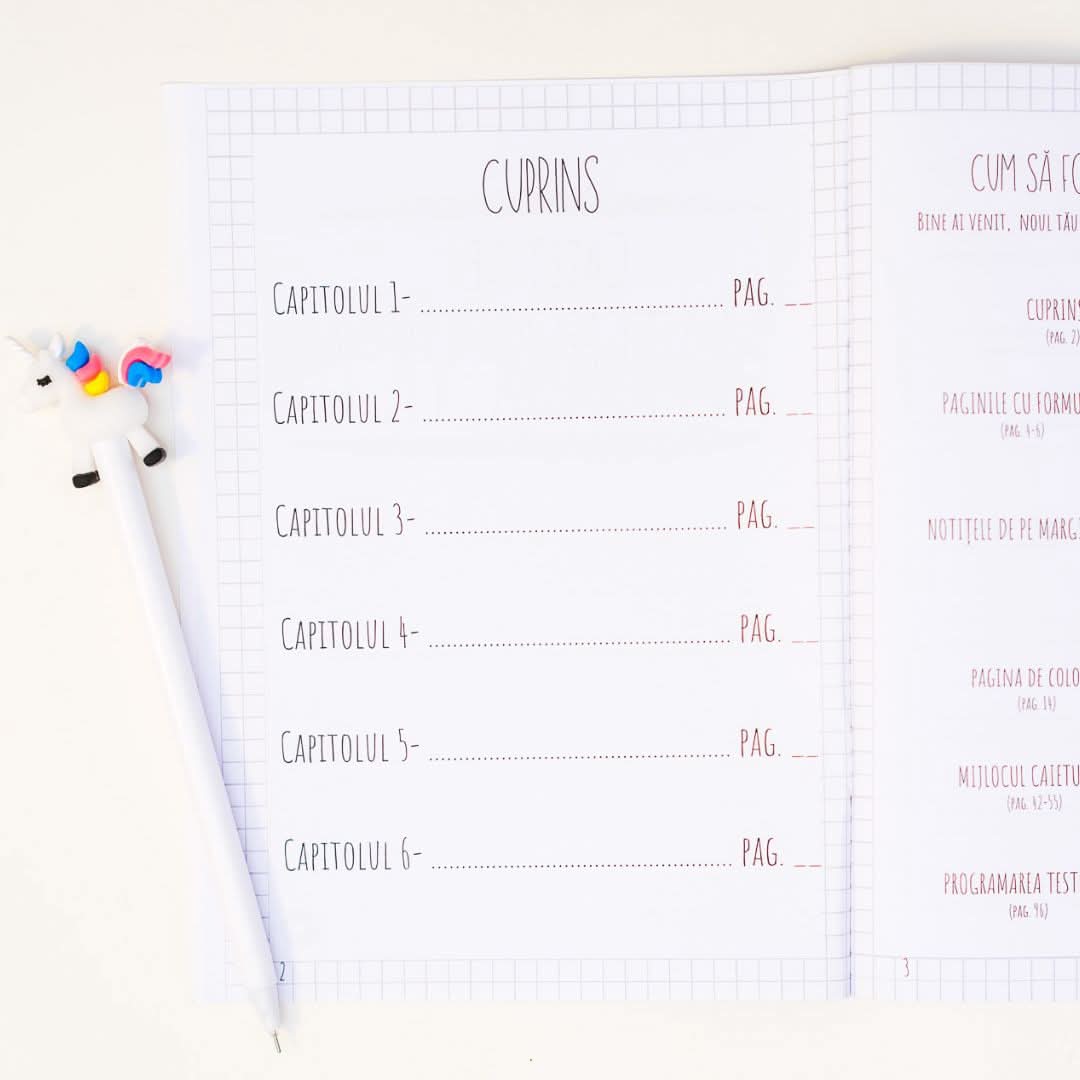 CUPRINS
CAPITOLUL 1- ........................................ PAG. __
CAPITOLUL 2- ........................................ PAG. __
CAPITOLUL 3- ........................................ PAG. __
CAPITOLUL 4- ........................................ PAG. __
CAPITOLUL 5- ........................................ PAG. __
CAPITOLUL 6- ........................................ PAG. __
2
CUM SĂ FO
BINE AI VENIT, NOUL TĂU
CUPRINS
(PAG. 2)
PAGINILE CU FORMU
(PAG. 4-6)
NOTIȚELE DE PE MARGI
PAGINA DE COLO
(PAG. 14)
MIJLOCUL CAIETU
(PAG. 42-55)
PROGRAMAREA TEST
(PAG. 96)
3